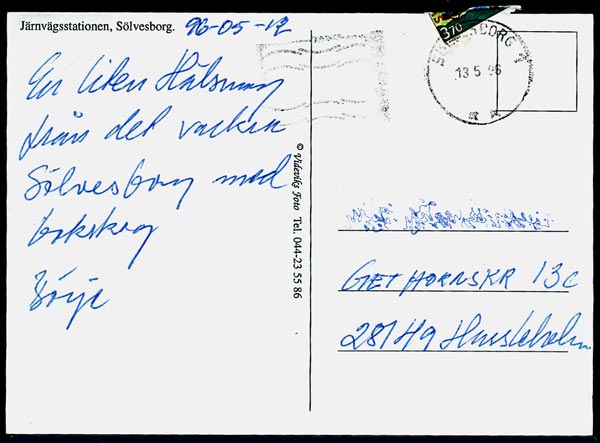 Järnvägsstationen, Sölvesborg. 96-05-12
En liten Hälsning
från det vackra
Sölvesborg med
bokskog
Börje
© Videviks Foto Tel. 044-23 55 86
370
SÖLVESBORG 1
13 5 96
GETHORNSKR 13C
28149 Hässleholm